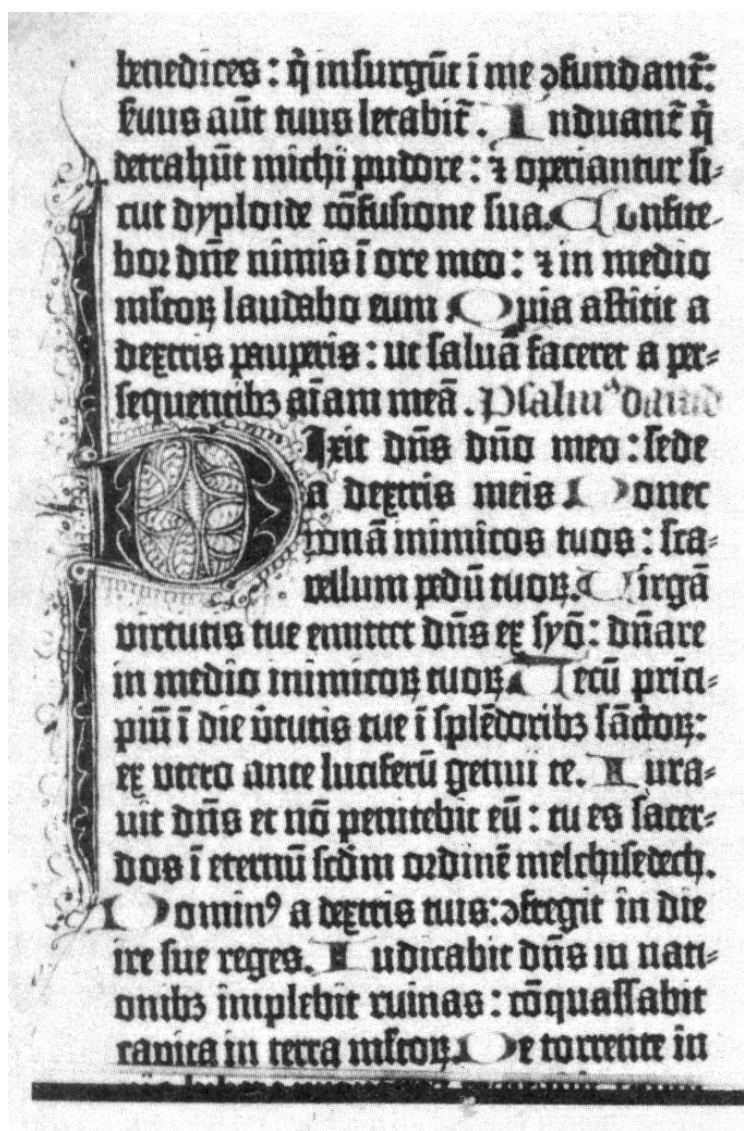 benedices : q̄ insurgūt ī me ɔfundant᷑:
ẜuus aūt tuus letabit᷑. Induant᷑ q̄
detrahūt michi pudore : ⁊ operiantur si⸗
cut dyploide cōfusione sua. Confite⸗
boꝛ dn̄e nimis ī ore meo : ⁊ in medio
mĺtoꝝ laudabo eum. Quia astitit a
dextris pauperis : ut saluā faceret a per⸗
sequentibꝫ aīam meā. Psalmꝰ dauid
Dixit dn̄s dn̄o meo : sede
a dextris meis Donec
ponā inimicos tuos : sca⸗
bellum pedū tuoꝝ. Uirgā
uirtutis tue emittet dn̄s ex syō : dn̄are
in medio inimicoꝝ tuoꝝ. Tecū prīci⸗
piū ī die ūtutis tue ī splēdoribꝫ sāctoꝝ:
ex utero ante luciferū genui te. Iura⸗
uit dn̄s et nō penitebit eū : tu es sacer⸗
dos ī eternū scd̄m ordinē melchisedech.
Dominꝰ a dextris tuis: ɔfregit in die
ire sue reges. Iudicabit dn̄s in nati⸗
onibꝫ implebit ruinas : cōquassabit
capita in terra mĺtoꝝ. De torrente in